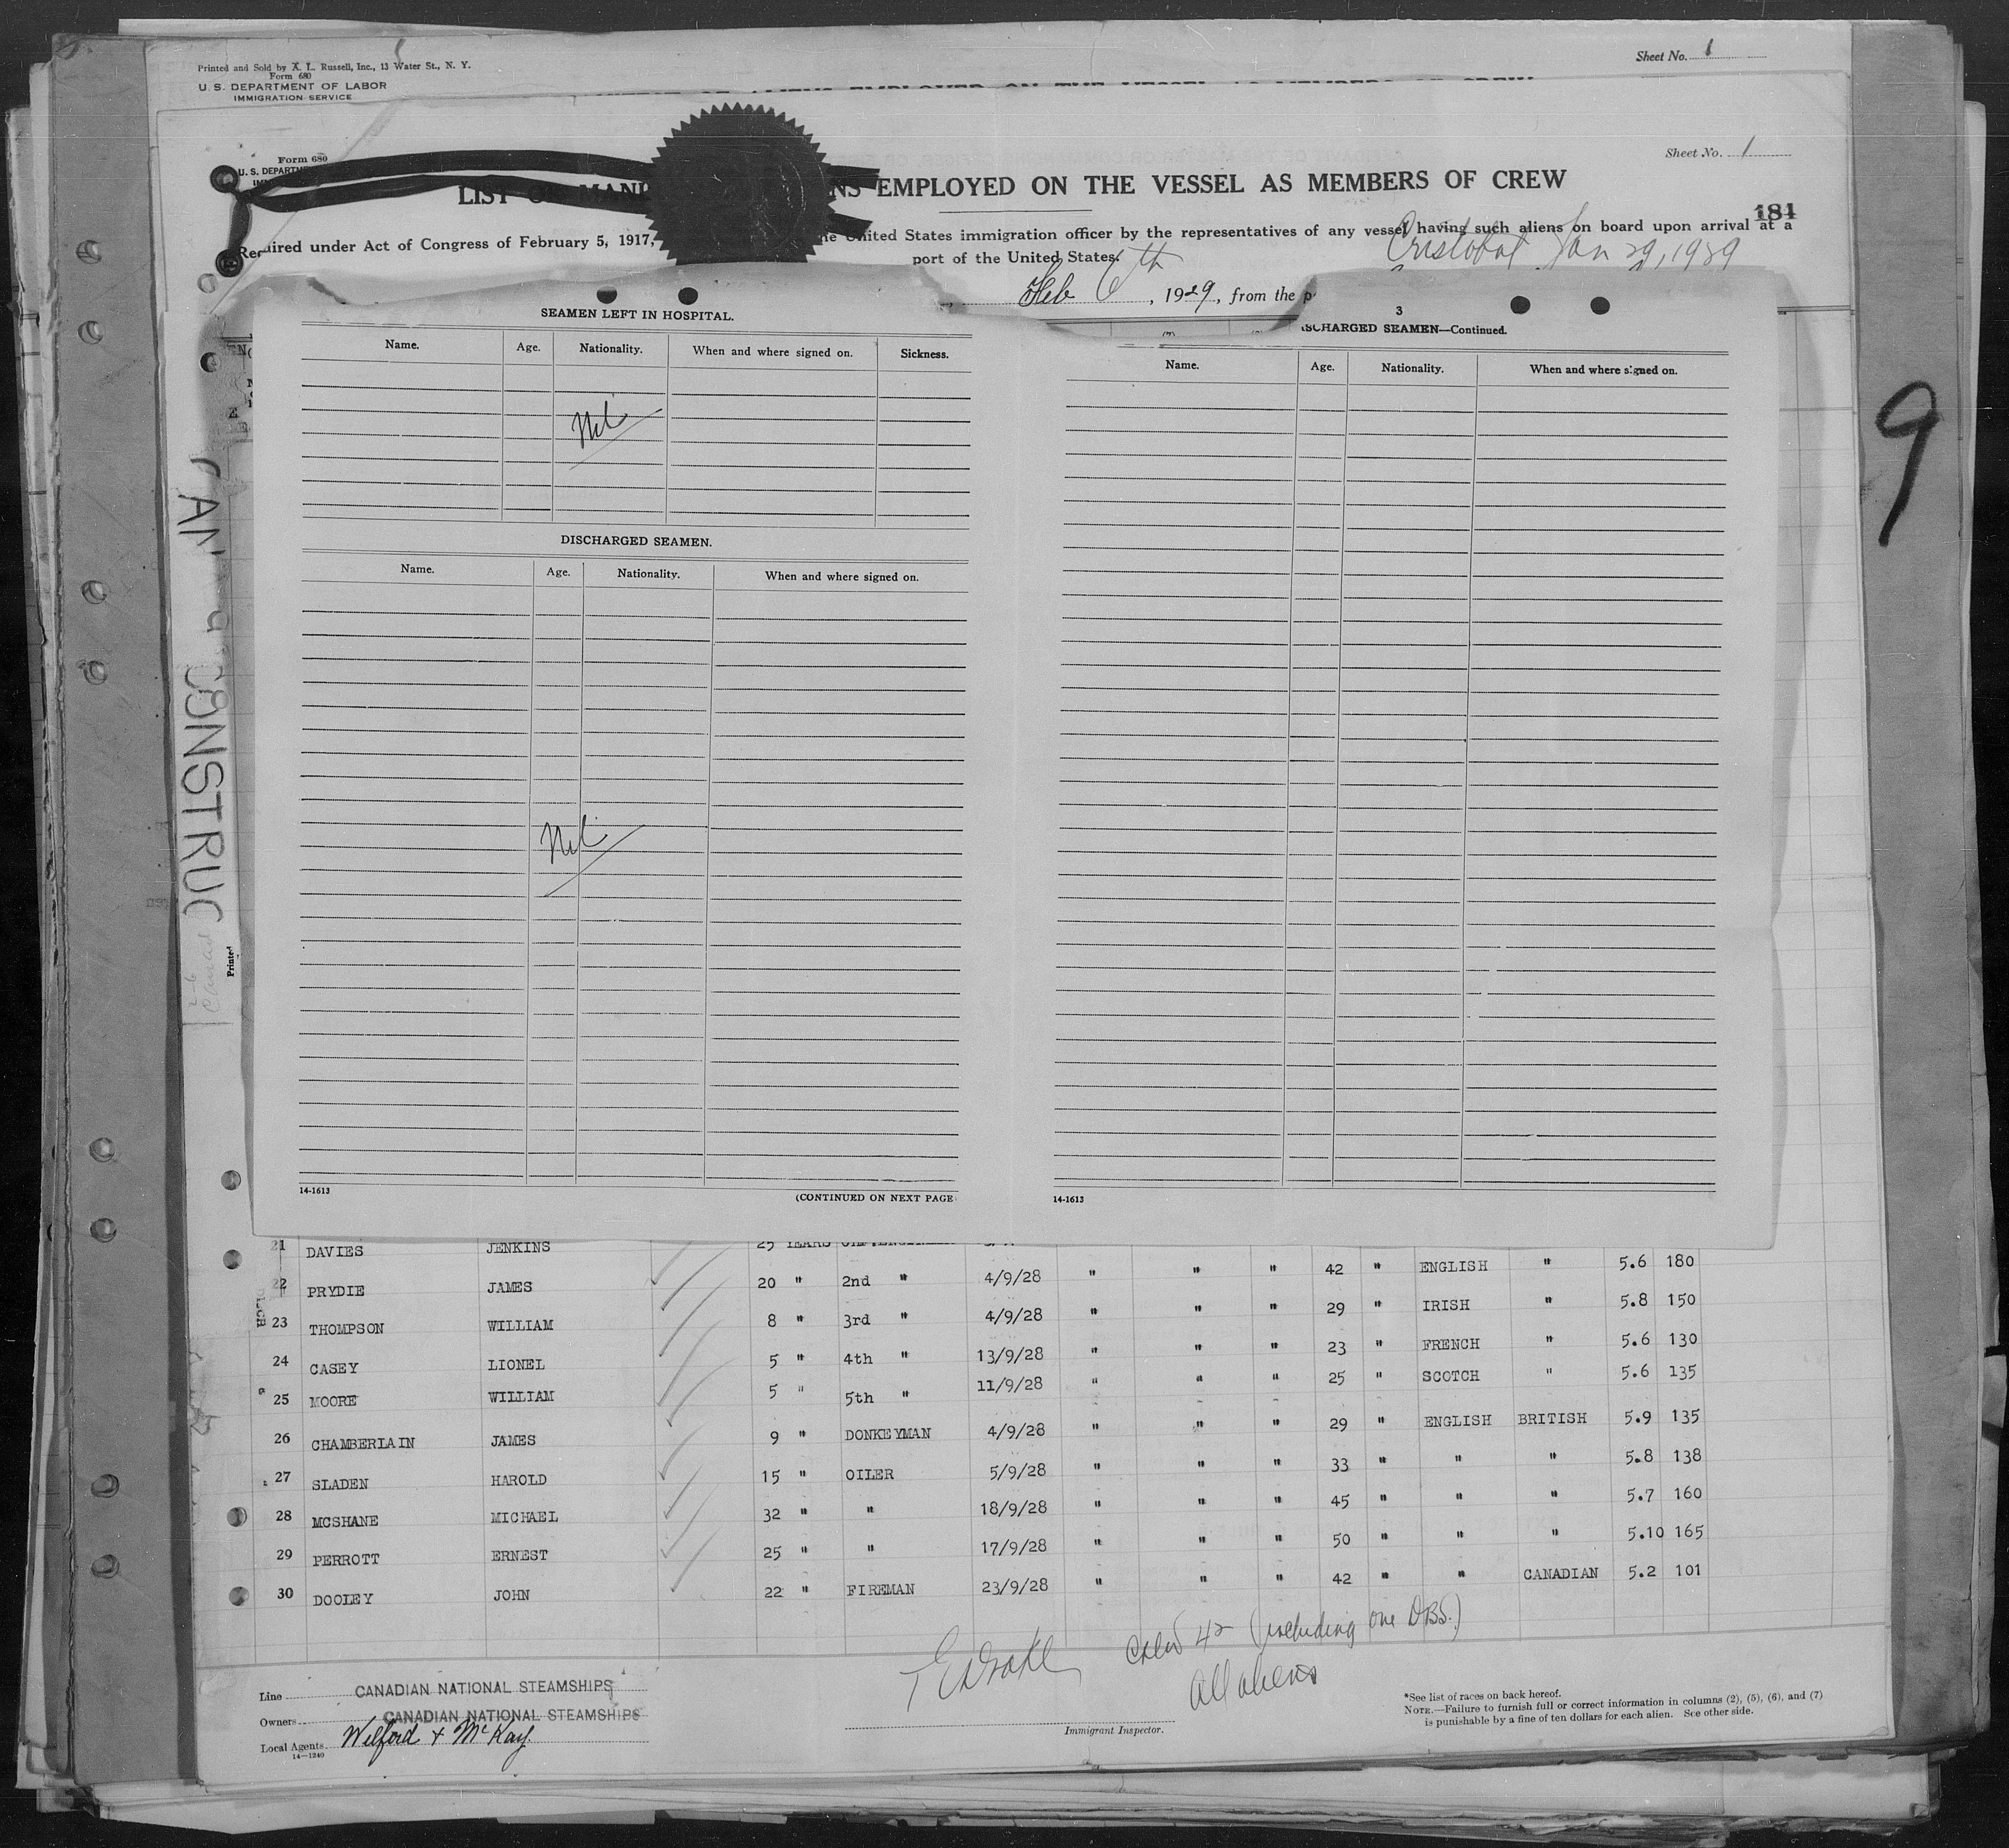 Printed and Sold by A. L. Russell, Inc., 13 Water St., N. Y.
Form 680
U. S. DEPARTMENT OF LABOR
IMMIGRATION SERVICE
Sheet No. 1
Form 680
U. S. DEPARTM
Sheet No. 1
LIST O MANI NS EMPLOYED ON THE VESSEL AS MEMBERS OF CREW
184
Required under Act of Congress of February 5, 1917, the United States immigration officer by the representatives of any vessel having such aliens on board upon arrival at a
port of the United States.
Cristobal Jan 29, 1929
Feb 6th, 1929, from the p
SEAMEN LEFT IN HOSPITAL.
Name. Age. Nationality. When and where signed on. Sickness.
Nil
DISCHARGED SEAMEN.
Name. Age. Nationality. When and where signed on.
Nil
14-1613
(CONTINUED ON NEXT PAGE
3
ISCHARGED SEAMEN—Continued.
Name. Age. Nationality. When and where signed on.
14-1613
9
CONSTRUC
Printed
21 DAVIES JENKINS 25 YEARS
22 PRYDIE JAMES 20 " 2nd " 4/9/28 " " " 42 " ENGLISH " 5.6 180
23 THOMPSON WILLIAM 8 " 3rd " 4/9/28 " " " 29 " IRISH " 5.8 150
24 CASEY LIONEL 5 " 4th " 13/9/28 " " " 23 " FRENCH " 5.6 130
25 MOORE WILLIAM 5 " 5th " 11/9/28 " " " 25 " SCOTCH " 5.6 135
26 CHAMBERLAIN JAMES 9 " DONKEYMAN 4/9/28 " " " 29 " ENGLISH BRITISH 5.9 135
27 SLADEN HAROLD 15 " OILER 5/9/28 " " " 33 " " " 5.8 138
28 MCSHANE MICHAEL 32 " " 18/9/28 " " " 45 " " " 5.7 160
29 PERROTT ERNEST 25 " " 17/9/28 " " " 50 " " " 5.10 165
30 DOOLEY JOHN 22 " FIREMAN 23/9/28 " " " 42 " " CANADIAN 5.2 101
Crew 42 (including one DBS.)
All aliens
Immigrant Inspector.
Line CANADIAN NATIONAL STEAMSHIPS
Owners CANADIAN NATIONAL STEAMSHIPS
Local Agents Wilford & McKay.
14—1240
*See list of races on back hereof.
NOTE.—Failure to furnish full or correct information in columns (2), (5), (6), and (7)
is punishable by a fine of ten dollars for each alien. See other side.